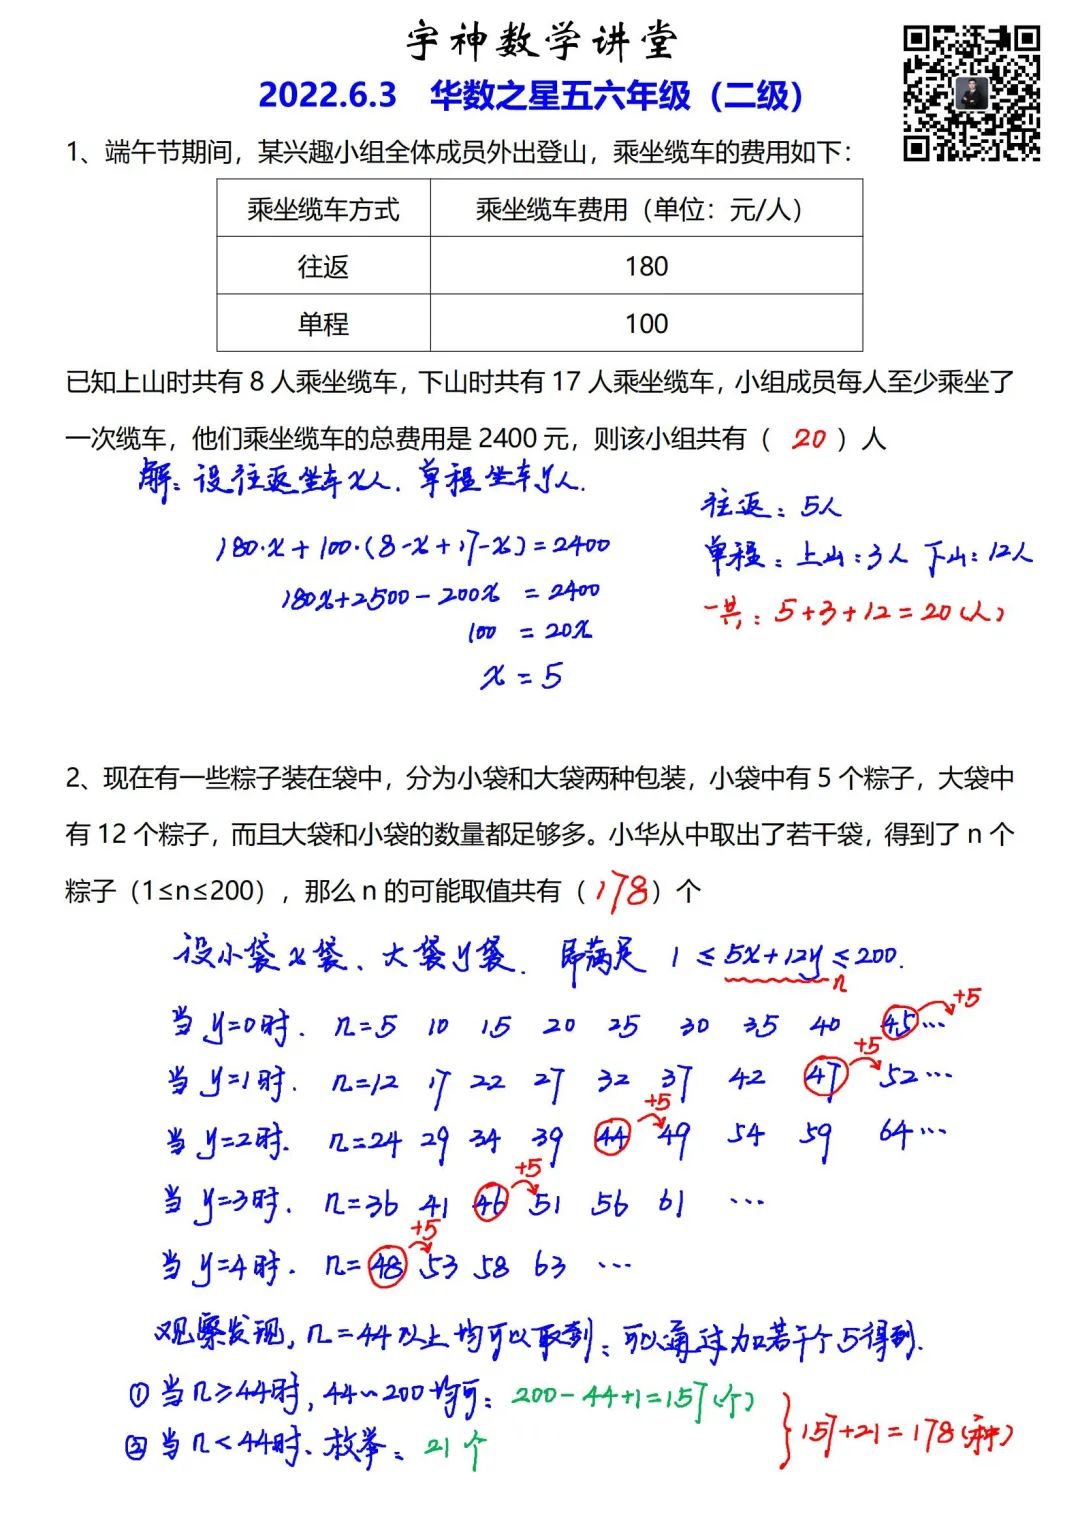 宇神数学讲堂
2022.6.3 华数之星五六年级（二级）
1、端午节期间，某兴趣小组全体成员外出登山，乘坐缆车的费用如下：
乘坐缆车方式 乘坐缆车费用（单位：元/人）
往返 180
单程 100
已知上山时共有8人乘坐缆车，下山时共有17人乘坐缆车，小组成员每人至少乘坐了
一次缆车，他们乘坐缆车的总费用是2400元，则该小组共有（ 20 ）人
解：设往返坐车x人．单程坐车y人．
180·x+100·(8-x+17-x)=2400
180x+2500-200x =2400
100 =20x
x=5
往返：5人
单程：上山：3人 下山：12人
一共：5+3+12=20(人)
2、现在有一些粽子装在袋中，分为小袋和大袋两种包装，小袋中有5个粽子，大袋中
有12个粽子，而且大袋和小袋的数量都足够多。小华从中取出了若干袋，得到了n个
粽子（1≤n≤200），那么n的可能取值共有（178）个
设小袋x袋、大袋y袋． 即满足 1≤5x+12y≤200．
n
当y=0时．n=5 10 15 20 25 30 35 40 45… +5
当y=1时．n=12 17 22 27 32 37 42 47 +5 52…
当y=2时．n=24 29 34 39 44 +5 49 54 59 64…
当y=3时．n=36 41 46 +5 51 56 61 …
当y=4时．n=48 +5 53 58 63 …
观察发现，n=44以上均可以取到；可以通过加若干个5得到．
①当n≥44时，44~200均可：200-44+1=157(个)
②当n<44时、枚举：21个
157+21=178(种)